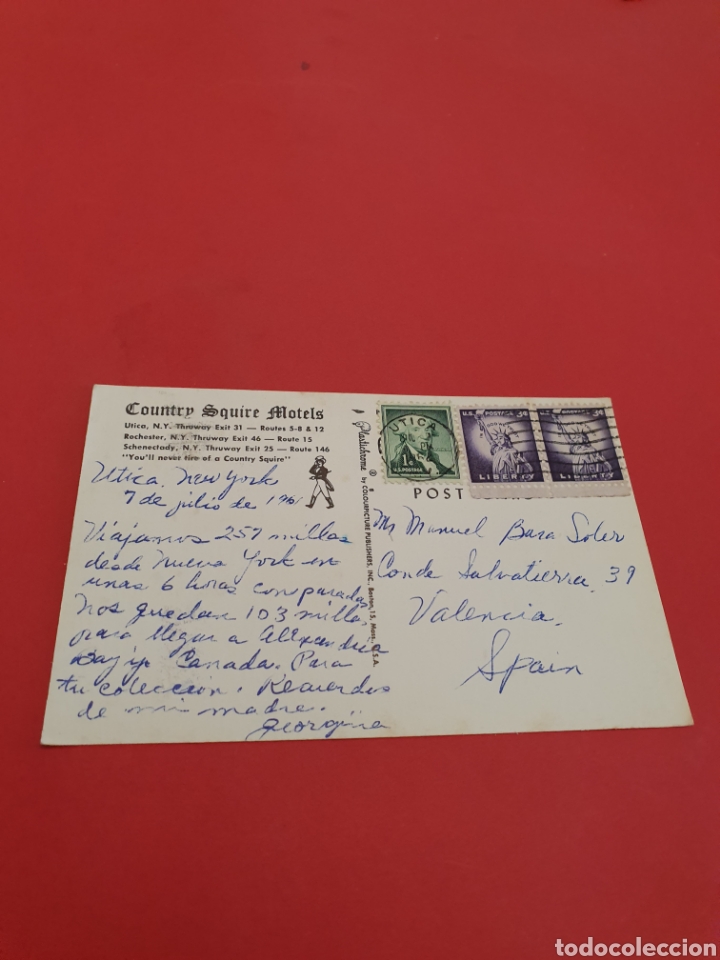 Country Squire Motels
Utica, N.Y. Thruway Exit 31 — Routes 5-8 & 12
Rochester, N.Y. Thruway Exit 46 — Route 15
Schenectady, N.Y. Thruway Exit 25 — Route 146
"You'll never tire of a Country Squire"
Utica, New York
7 de julio de 1961
Viajamos 257 millas
desde Nueva York en
unas 6 horas con paradas.
Nos quedan 103 millas
para llegar a Alexandria
Bay y Canada. Para
tu colección. Recuerdos
de mi madre.
Georgina
Plastichrome ® by COLOURPICTURE PUBLISHERS, INC., Boston, 15, Mass., U.S.A.
POST
UTICA
1¢
U.S. POSTAGE
U.S. POSTAGE 3¢
LIBERTY
U.S. POSTAGE 3¢
LIBERTY
Mr Manuel Bara Soler
Conde Salvatierra, 39
Valencia.
Spain
todocoleccion